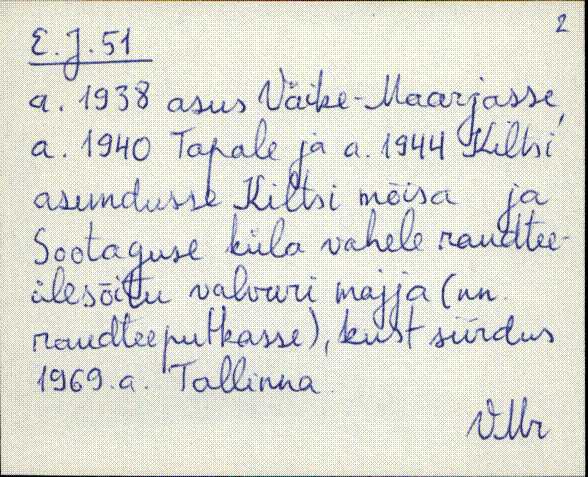 2
E. J. 51
a. 1938 asus Väike-Maarjasse,
a. 1940 Tapale ja a. 1944 Kiltsi
asundusse Kiltsi mõisa ja
Sootaguse küla vahele raudtee-
ülesõidu valvuri majja (nn.
raudteeputkasse), kust siirdus
1969. a. Tallinna.
VMr